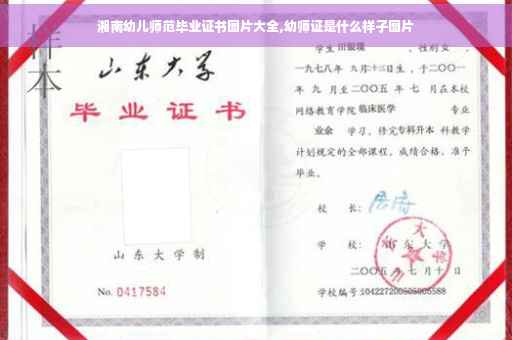 湘南幼儿师范毕业证书图片大全,幼师证是什么样子图片
样本
山东大学
毕业证书
山东大学制
No. 0417584
学生 田银环 ,性别女 ,
一九七八年 九月十三日生,于二〇〇一
年 九 月至二〇〇五 年 七 月在本校
网络教育学院 临床医学 专业
业余 学习,修完专科升本 科教学
计划规定的全部课程,成绩合格,准予
毕业。
校 长:
学 校: 山东大学
二〇〇五 年 七 月 十 日
学校编号:104227200505005588